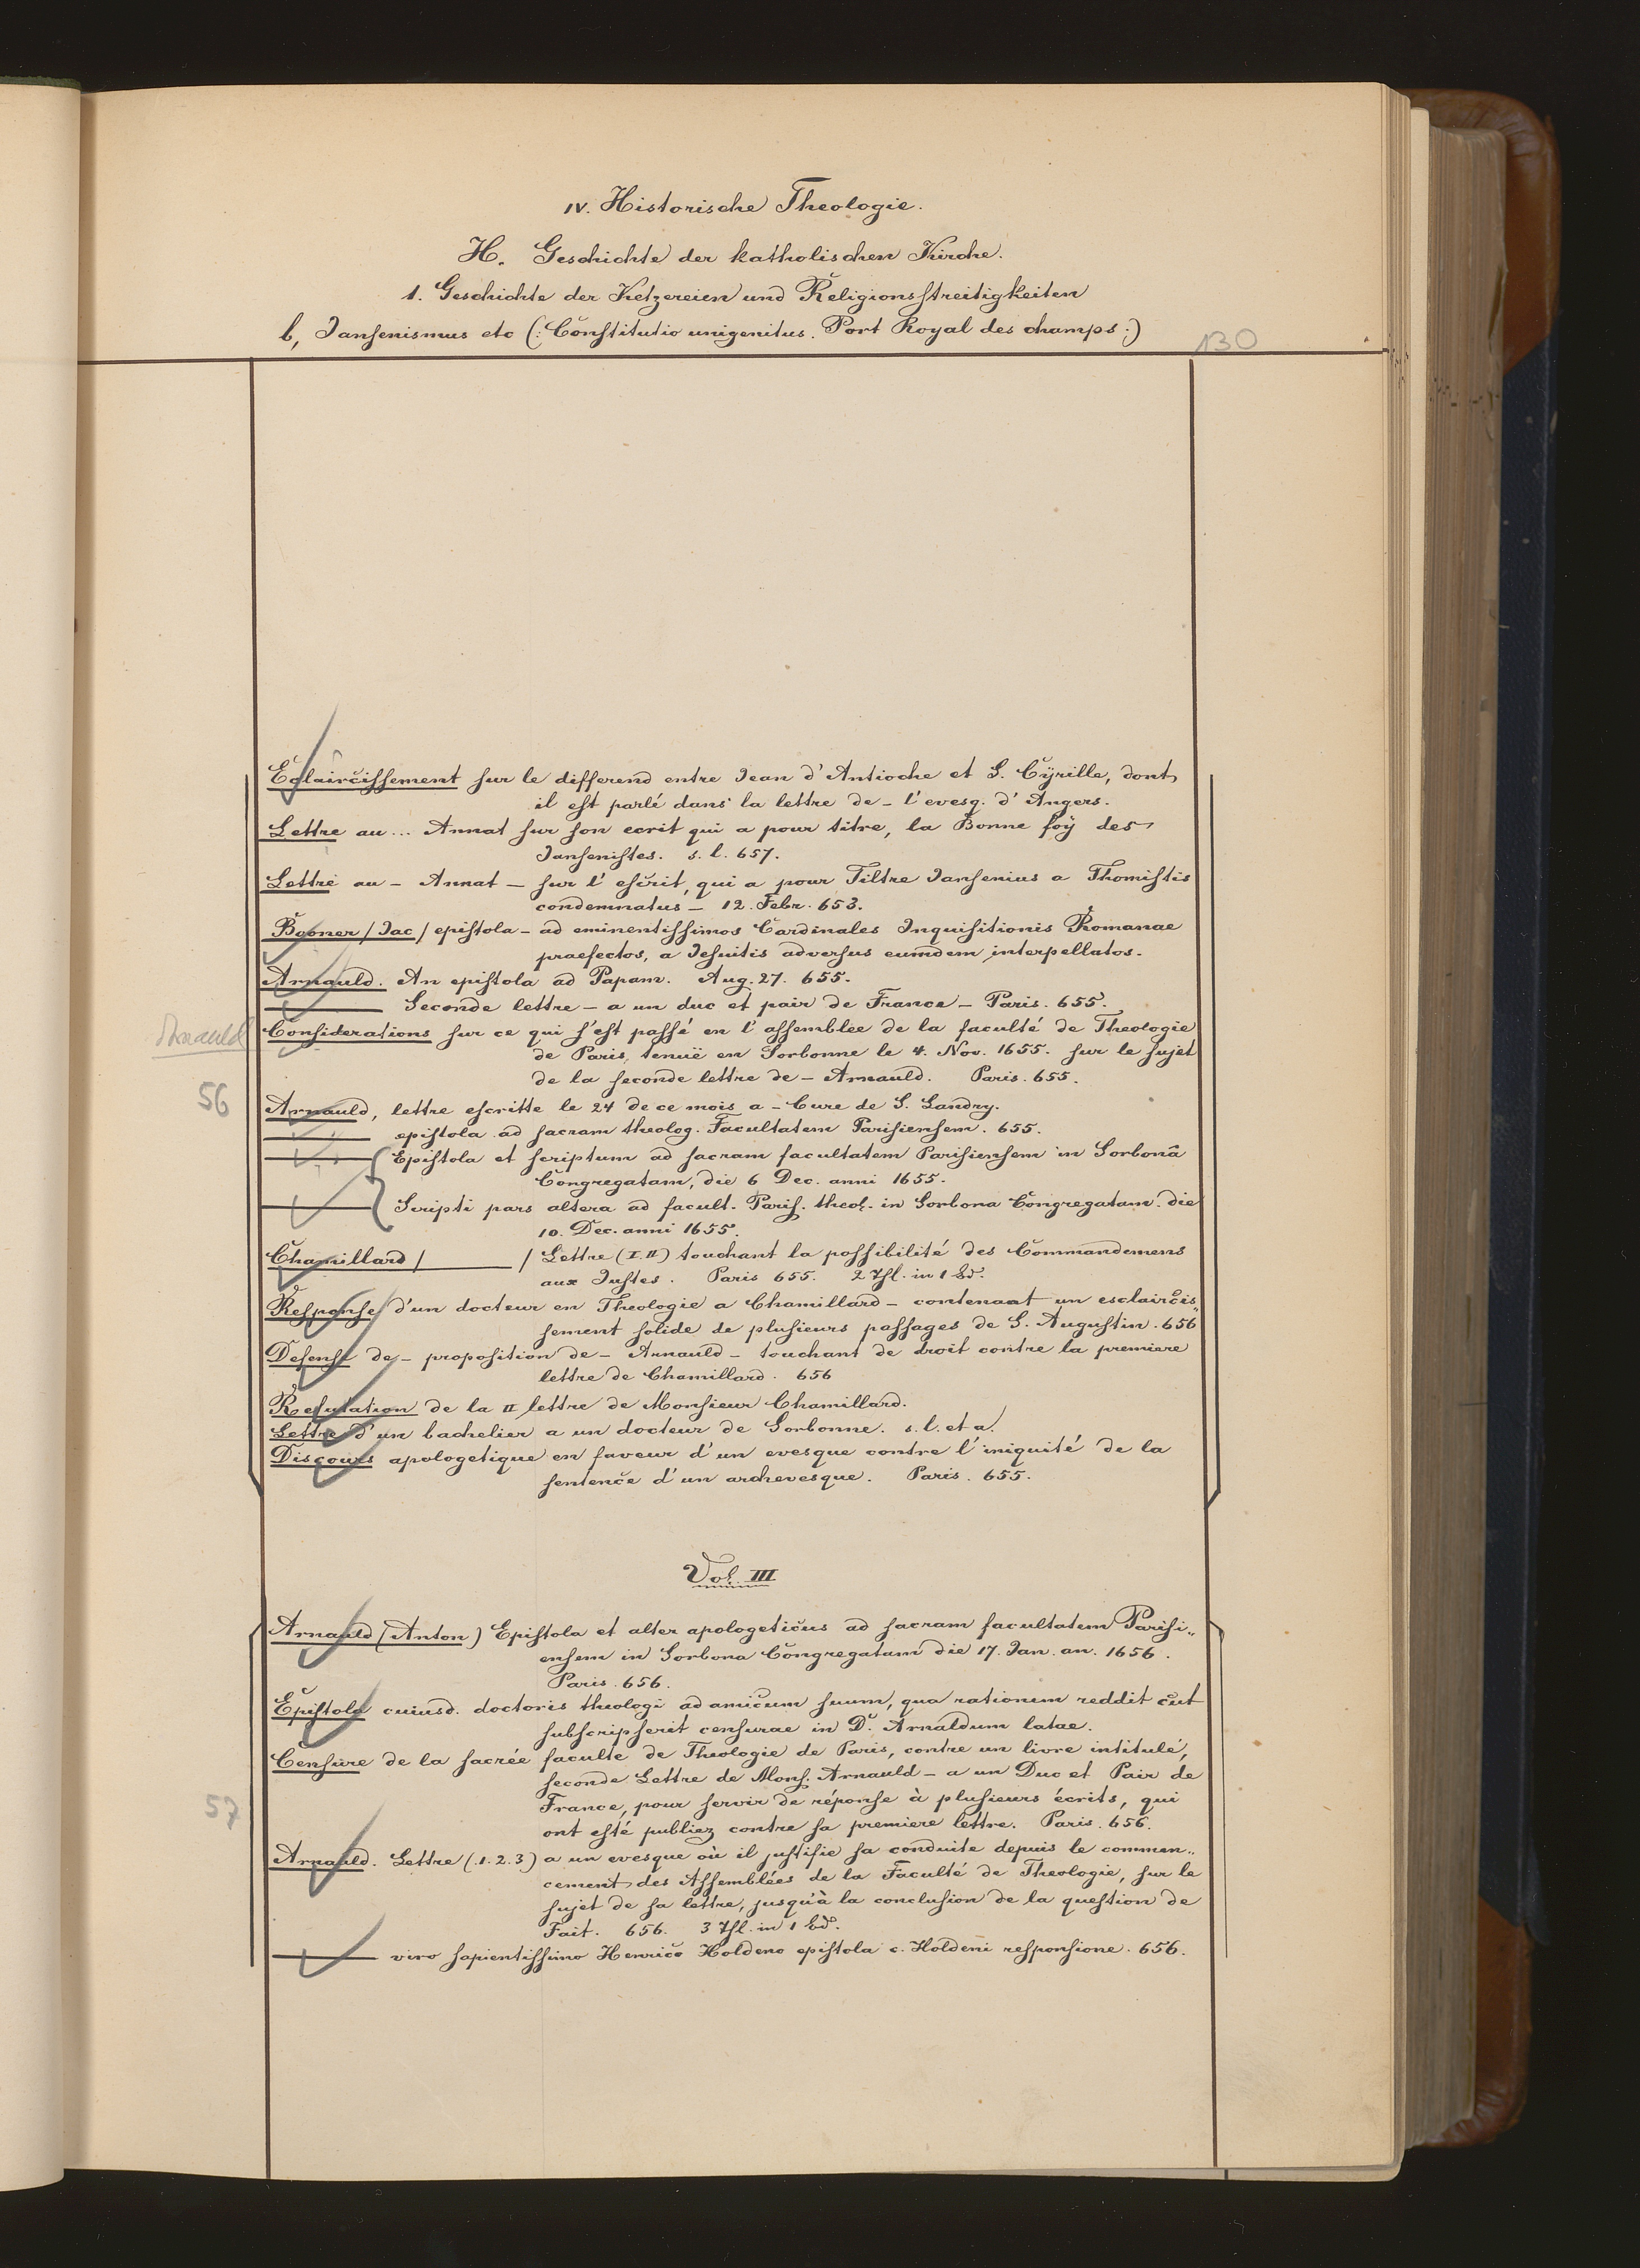 IV. Historische Theologie.
H. Geschichte der katholischen Kirche.
1. Geschichte der Ketzereien und Religionsstreitigkeiten
b, Jansenismus etc (: Constitutio unigenitus. Port Royal des champs :)
130
Eclaircissement sur le differend entre Jean d'Antioche et S. Cyrille, dont
il est parlé dans la lettre de – l'evesq. d'Angers.
Lettre au ... Annat sur son ecrit qui a pour titre, la Bonne foÿ des
Jansenistes. s. l. 657.
Lettre au – Annat – sur l'escrit, qui a pour Tiltre Jansenius a Thomistis
condemnatus – 12. Febr. 653.
/Jac/ epistola – ad eminentissimos Cardinales Inquisitionis Romanae
praefectos, a Jesuitis adversus eumdem interpellatos.
Arnauld. An epistola ad Papam. Aug. 27. 655.
——— Seconde lettre – a un duc et pair de France – Paris. 655.
Arnauld
Considerations sur ce qui s'est passé en l'assemblee de la faculté de Theologie
de Paris, tenuë en Sorbonne le 4. Nov. 1655. sur le sujet
de la seconde lettre de – Arnauld. Paris. 655.
56
Arnauld, lettre escritte le 24 de ce mois a – Cure de S. Landry.
——— epistola ad sacram theolog. Facultatem Parisiensem. 655.
——— Epistola et scriptum ad sacram facultatem Parisiensem in Sorbonâ
Congregatam, die 6 Dec. anni 1655.
——— Scripti pars altera ad facult. Paris. theol. in Sorbona Congregatam. die
10. Dec. anni 1655.
Chamillard /———/ Lettre (I. II) touchant la possibilité des Commandemens
aux Justes. Paris 655. 2 Thl. in 1 Bd.
Response d'un docteur en Theologie a Chamillard – contenant un esclaircis„
sement solide de plusieurs passages de S. Augustin. 656
Defense de – proposition de – Arnauld – touchant de droit contre la premiere
lettre de Chamillard. 656
Refutation de la II lettre de Monsieur Chamillard.
Lettre d'un bachelier a un docteur de Sorbonne. s. l. et a.
Discours apologetique en faveur d'un evesque contre l'iniquité de la
sentence d'un archevesque. Paris. 655.
Vol. III
Arnauld (Anton) Epistola et alter apologeticus ad sacram facultatem Parisi„
ensem in Sorbona Congregatam die 17. Jan. an. 1656.
Paris. 656.
Epistola cuiusd. doctoris theologi ad amicum suum, qua rationem reddit cut
subscripserit censurae in Dr. Arnaldum latae.
Censure de la sacrée faculte de Theologie de Paris, contre un livre intitulé,
seconde Lettre de Mons. Arnauld – a un Duc et Pair de
France, pour servir de réponse à plusieurs écrits, qui
57
ont esté publiez contre sa premiere lettre. Paris. 656.
Arnauld. Lettre (.1.2.3) a un evesque où il justifie sa conduite depuis le commen„
cement des Assemblées de la Faculté de Theologie, sur le
sujet de sa lettre, jusqu'à la conclusion de la question de
Fait. 656. 3 Thl. in 1 Bd.
——— viro sapientissimo Henrico Holdeno epistola c. Holdeni responsione. 656.